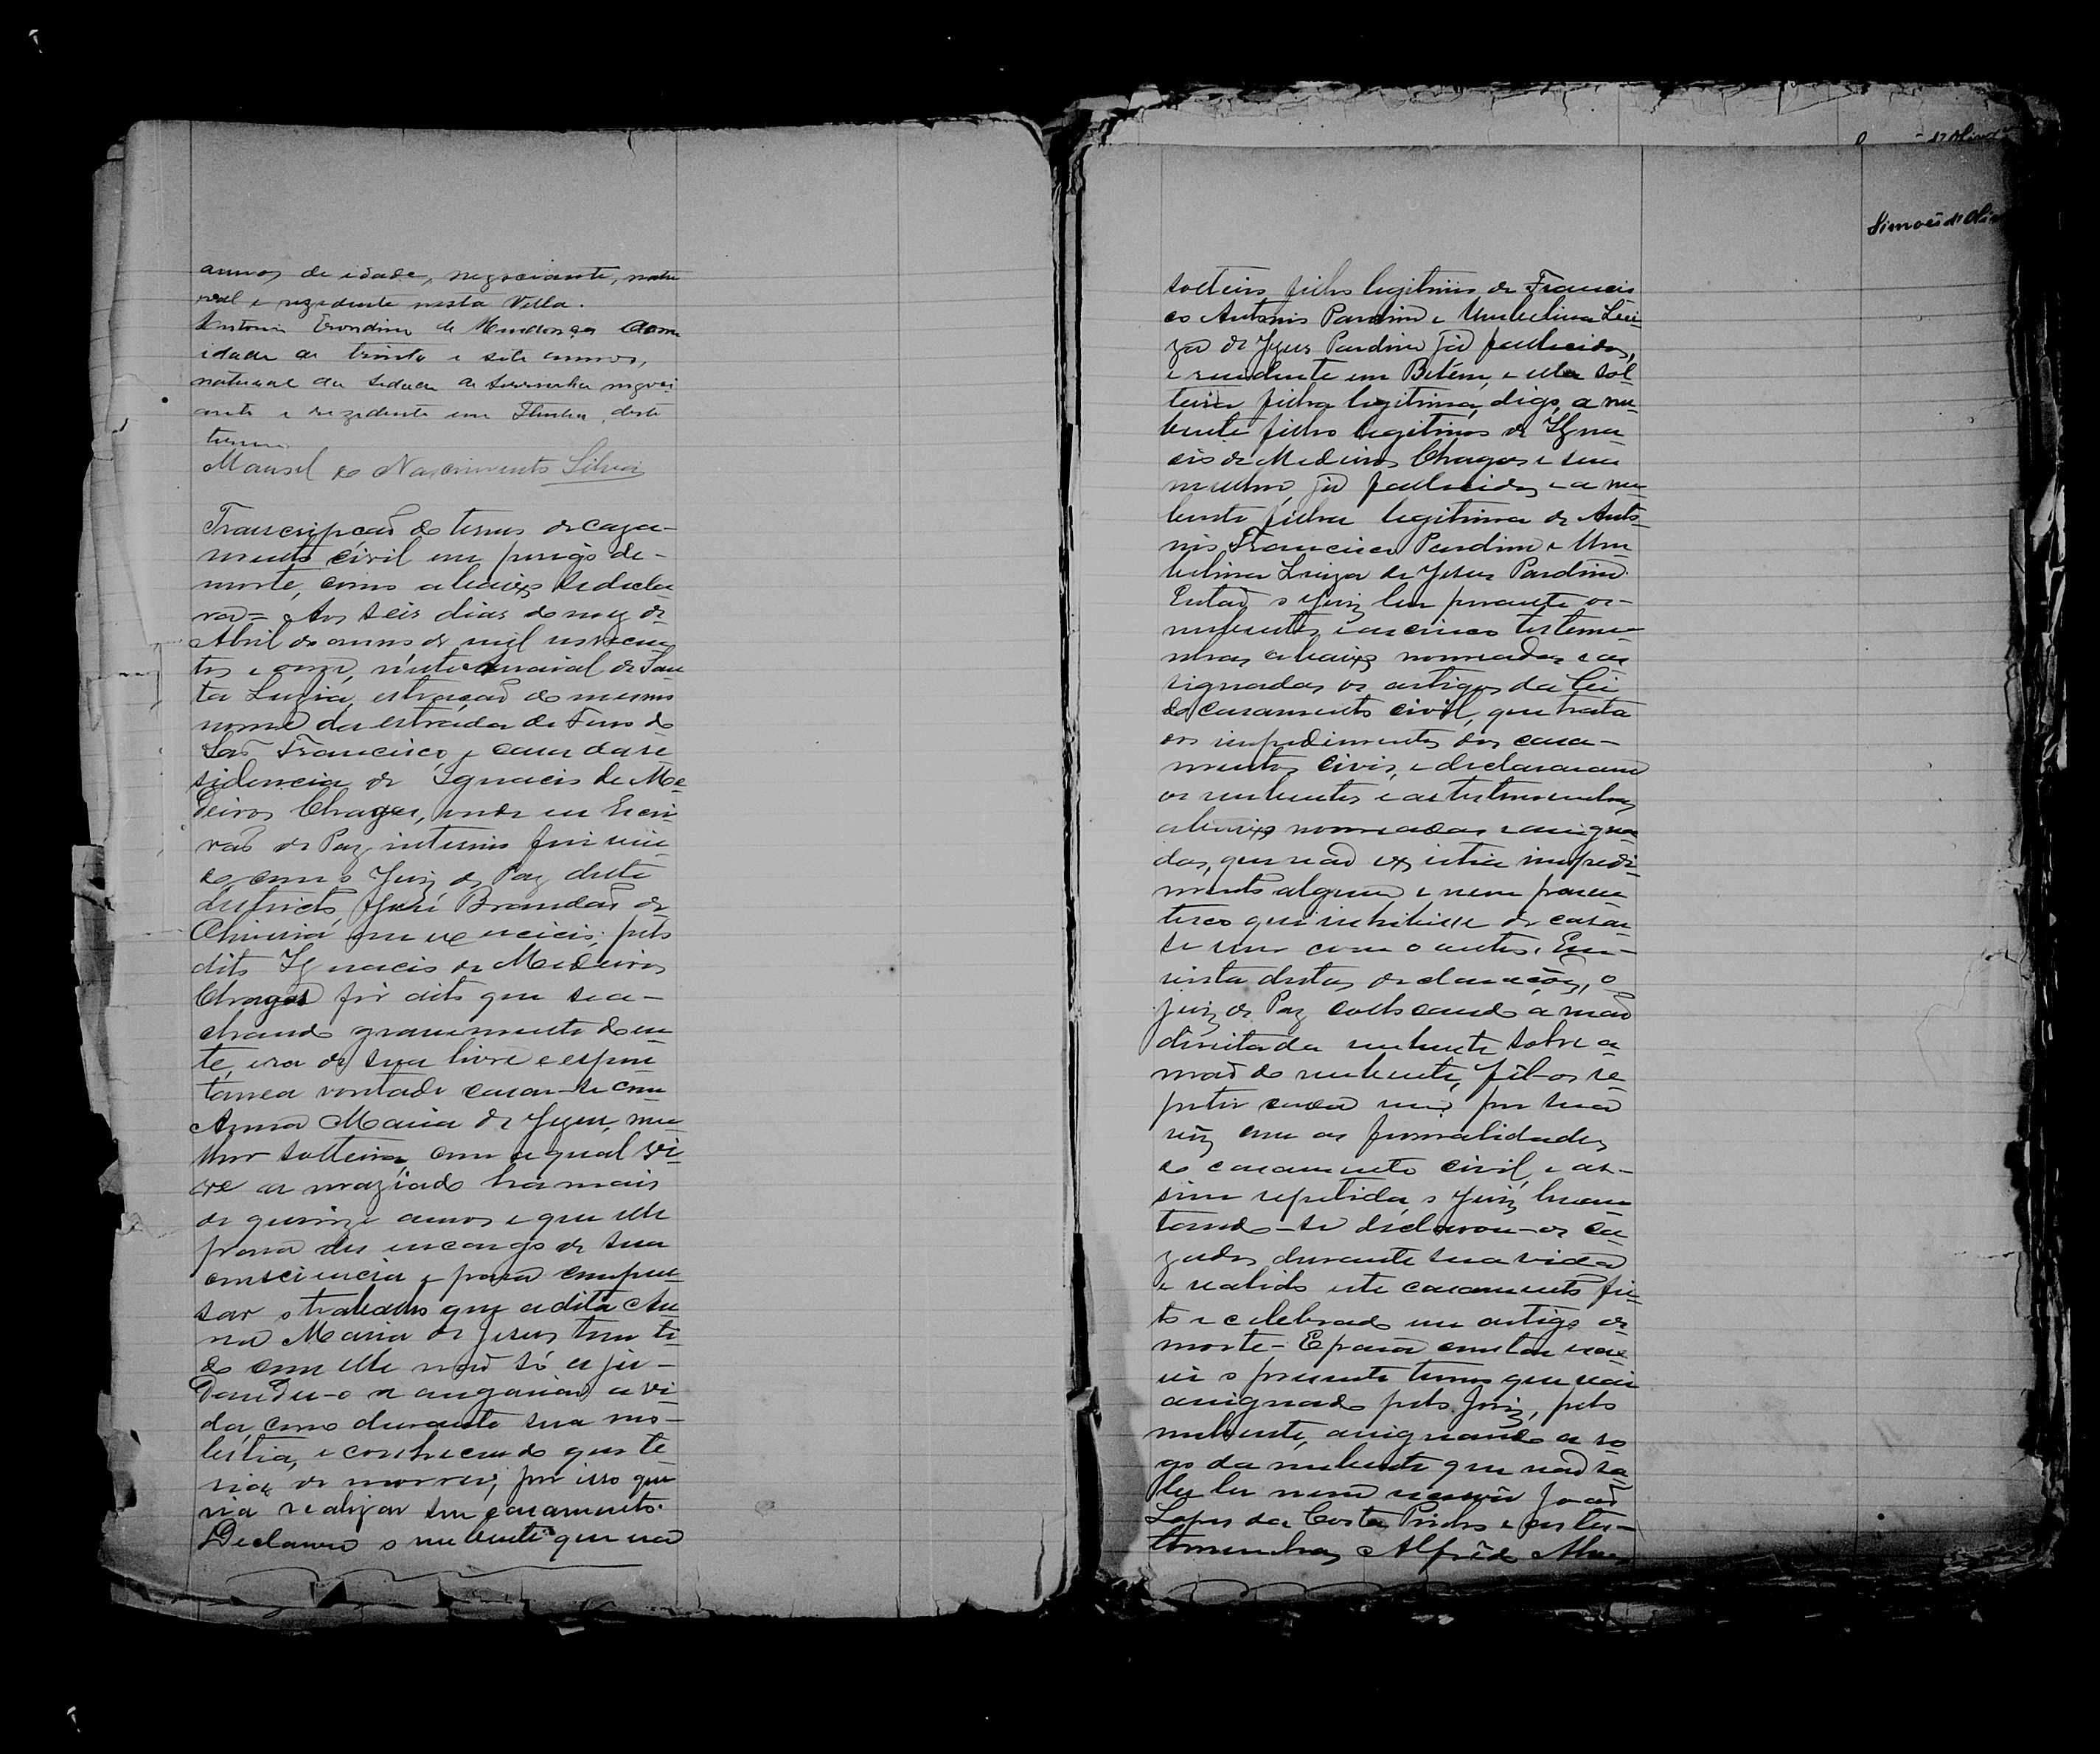 annos de idade, negociante, natu
ral e rezidente nesta Villa.
Antonio Erondino de Mendonça com
idade de trinta e sete annos,
natural da cidade de Serrinha negoci
ante e rezidente em Ilheta, deste
termo.
Manoel do Nascimento Silva
Transcripção do termo de caza-
mento civil em perigo de-
morte, como abaixo se decla
ra = Aos seis dias do mez de
Abril do anno de mil novecen
tos e onze, n'este Arraial de San
ta Luzia, estação do mesmo
nome da estrada de Ferro de
São Francisco, e casa da re
sidencia de Ignacio de Me
deiros Chagas, onde eu Escri
vão de Paz interino fui vin
do com o Juiz de Paz deste
districto, José Brandão de
Oliveira em exercicio; pelo
dito Ignacio de Medeiros
Chagas foi dito que se a-
chando gravemente doen
te, era de sua livre e espon
tanea vontade casar-se com
Anna Maria de Jesus, mu
lher solteira, com a qual vi-
ve amaziado ha mais
de quinze annos e que elle
para des encargo de sua
consciencia e para compen
sar o trabalho que a dita An
na Maria de Jesus tem ti
do com elle não só aju-
dando-o a angariar a vi
da, como durante sua mo-
lestia, e conhecendo que te
ria de morrer, por isso que
ria realizar seu casamento.
Declarou o nubente que era
solteiro filho legitimo de Francis
co Antonio Pardino e Umbelina Lui-
za de Jesus Pardino já fallecidos,
e residente em Belém, e ella sol-
teira filha legitima, digo, o nu-
bente filho legitimo de Igna
cio de Medeiros Chagas e sua
mulher, já fallecidos e a nu
bente filha legitima de Anto-
nio Francisco Pardino e Um
belina Luiza de Jesus Pardino.
Então o Juiz leu perante os-
nubentes e as cinco testemu-
nhas abaixo nomeadas e as
signadas os artigos da lei
do casamento civil, que trata
dos impedimentos dos casa-
mentos civis, e declararam
os nubentes e as testemunhas
abaixo nomeadas e assigna
das, que não existia impedi-
mento algum e nem paren
tesco que inhibisse de casar
se um com o outro. Em-
vista destas declarações, o
juiz de Paz collocando a mão
direita da nubente sobre a
mão do nubente, fêl-os re
petir cada um por sua
vez com as formalidades
do casamento civil, e as-
sim repetida, o Juiz levan
tando-se declarou-os ca-
zados durante sua vida
e valido este casamento fei-
to e celebrado em artigo de
morte - E para constar escre
vi o presente termo que vai
assignado pelo Juiz, pelo
nubente, assignando a ro
go da nubente que não sa
be ler nem escrever João
Lopes da Costa Pinho e as tes-
temunhas Alfrêdo Alves
Simões d'Oliv